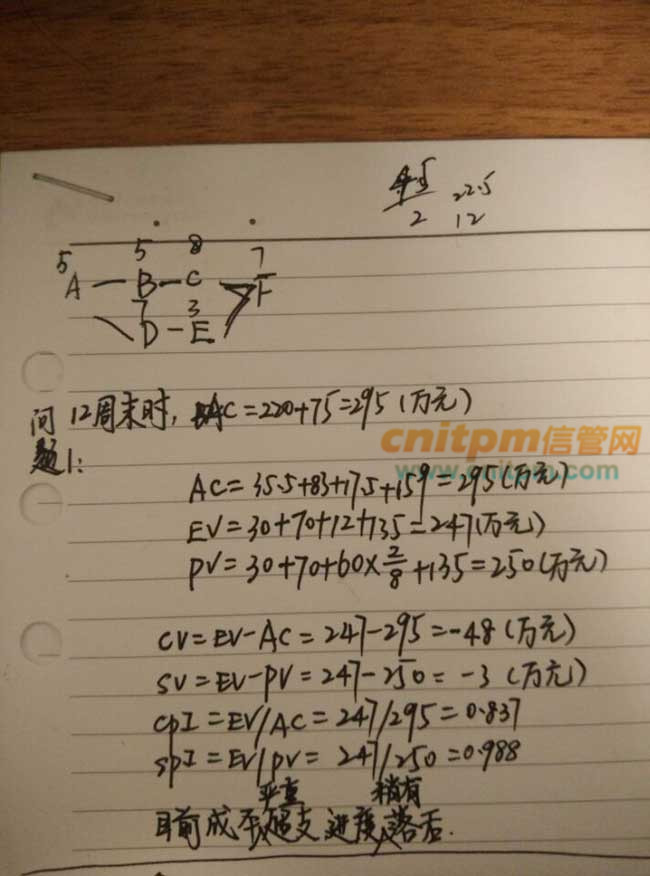 4.5
22.5
2 12
5 8 7
5 A — B — C F
7 3
D — E
问题1: 12周末时, AC=220+75=295(万元)
cnitpm信管网
www.cnitpm.com
AC=35.5+83+17.5+159=295(万元)
EV=30+70+12+135=247(万元)
PV=30+70+60×2/8+135=250(万元)
CV=EV-AC=247-295=-48(万元)
SV=EV-PV=247-250=-3(万元)
CPI=EV/AC=247/295=0.837
SPI=EV/PV=247/250=0.988
严重 稍有
目前成本超支 进度落后.